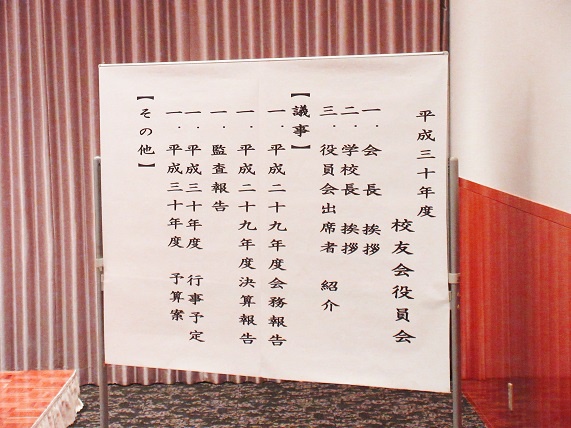 平成三十年度
校友会役員会
一．会長　挨拶
二．学校長　挨拶
三．役員会出席者　紹介
【議事】
一．平成二十九年度会務報告
一．平成二十九年度決算報告
一．監査報告
一．平成三十年度　行事予定
一．平成三十年度　予算案
【その他】